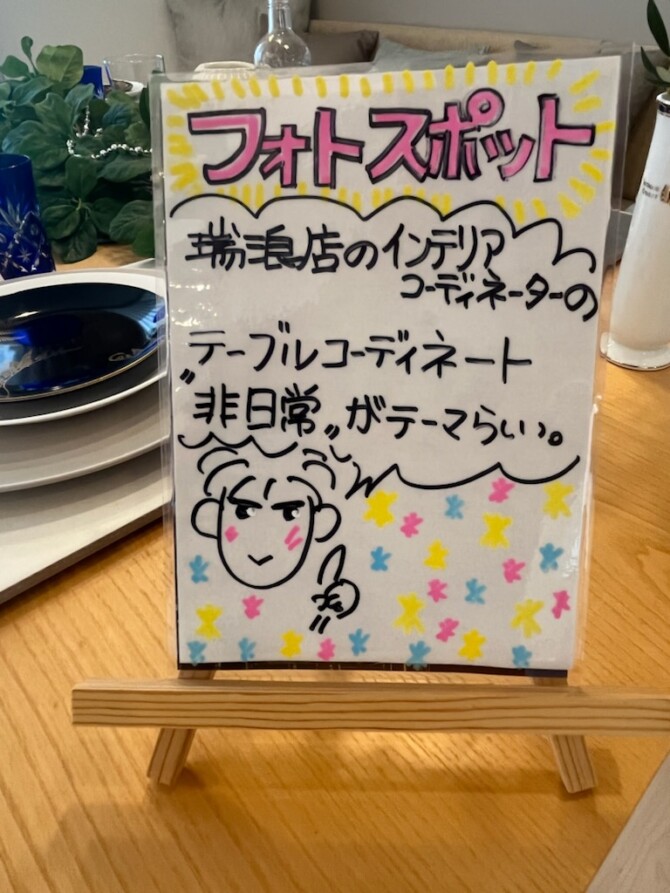 フォトスポット
瑞浪店のインテリア
コーディネーターの
テーブルコーディネート
〝非日常〟がテーマらしい。